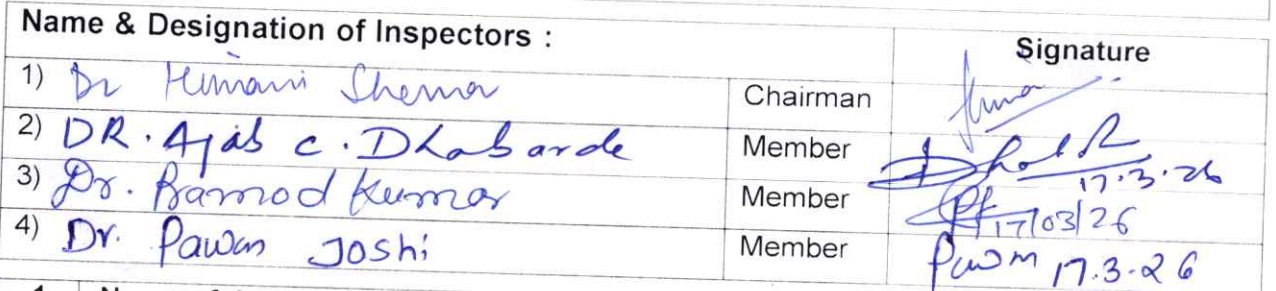 Name & Designation of Inspectors : Signature
1) Dr Himani Sharma Chairman
2) DR. Ajab C. Dhabarde Member 17.3.26
3) Dr. Pramod Kumar Member 17/03/26
4) Dr. Pawan Joshi Member Pawan 17.3.26
1